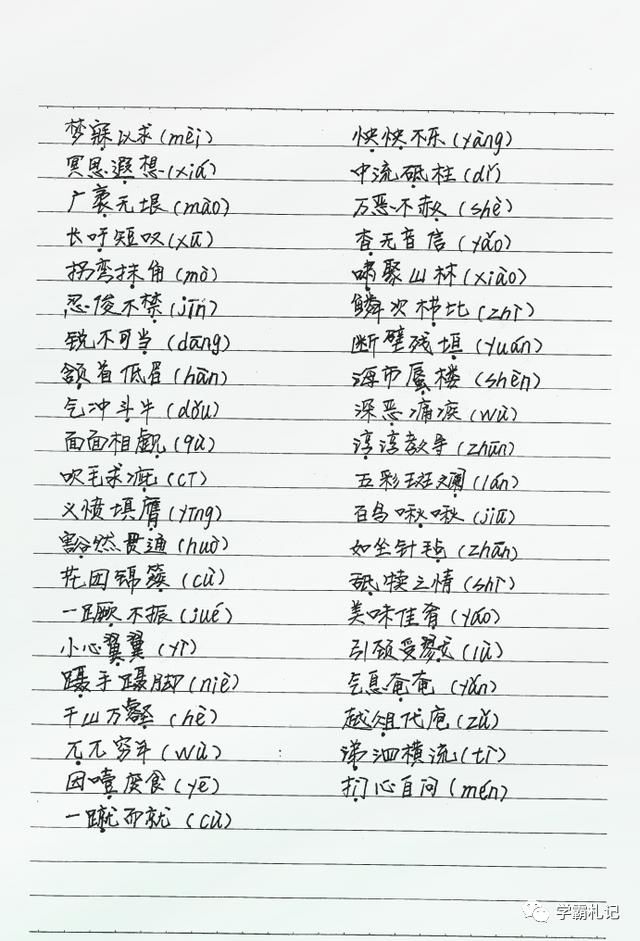 梦寐以求(mèi)
冥思遐想(xiá)
广袤无垠(mào)
长吁短叹(xū)
拐弯抹角(mò)
忍俊不禁(jīn)
锐不可当(dāng)
颔首低眉(hàn)
气冲斗牛(dǒu)
面面相觑(qù)
吹毛求疵(cī)
义愤填膺(yīng)
豁然贯通(huò)
花团锦簇(cù)
一蹶不振(jué)
小心翼翼(yì)
蹑手蹑脚(niè)
千山万壑(hè)
兀兀穷年(wù)
因噎废食(yē)
一蹴而就(cù)
怏怏不乐(yàng)
中流砥柱(dǐ)
万恶不赦(shè)
杳无音信(yǎo)
啸聚山林(xiào)
鳞次栉比(zhì)
断壁残垣(yuán)
海市蜃楼(shèn)
深恶痛疾(wù)
谆谆教导(zhūn)
五彩斑斓(lán)
百鸟啾啾(jiū)
如坐针毡(zhān)
舐犊之情(shì)
美味佳肴(yáo)
引颈受戮(lù)
气息奄奄(yǎn)
越俎代庖(zǔ)
涕泗横流(tì)
扪心自问(mén)
学霸札记